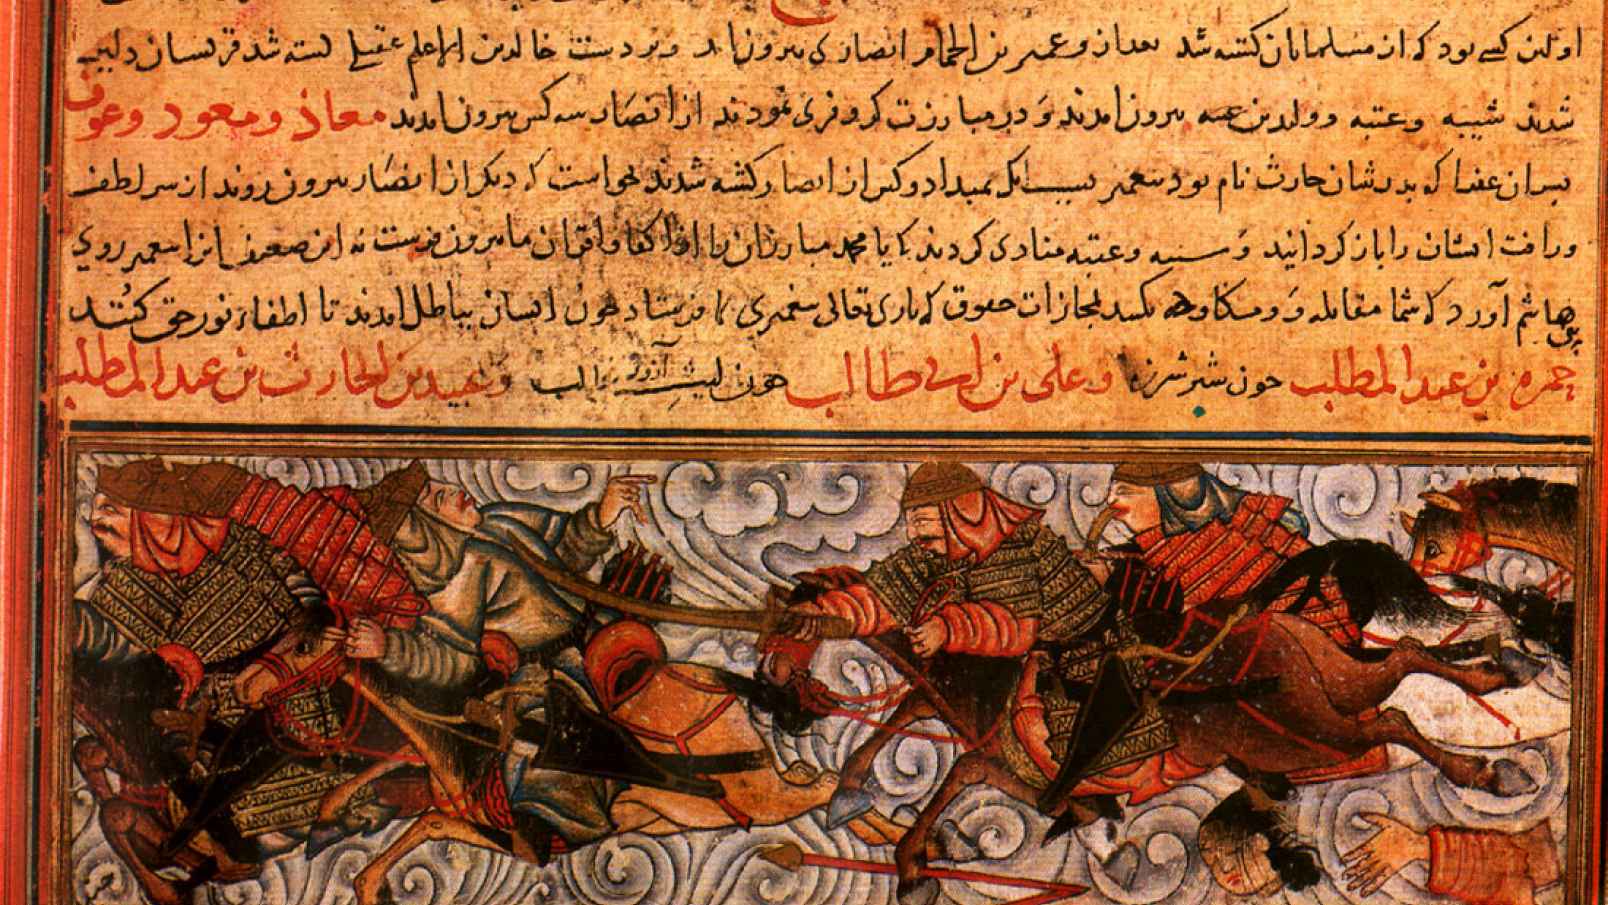 اولین کسی بود که از مسلمانان کشته شد بعد از و عمیر بن الحمام انصاری بیرون و بر دست خالد بن الاعلم عقیلی کشته شد
شدند شیبه و عتبه و ولید بن عتبه بیرون آمدند و در مبارزت کر و فری نمودند از انصار سه کس بیرون آمدند معاذ و معود و عوف
پسران عفرا که پدرشان حارث نام بود پیغمبر کشته شدند نخواست که دیگر از انصار بیرون روند از سر لطف
و رافت ایشان را باز گردانید و شیبه و عتبه منادی کردند که یا محمد مبارزان را از اکفا و اقران ما بیرون فرست نه این ضعیفانرا پیغمبر روی
بنی هاشم آورد که شما مقابله و مجازات حقوق که باری تعالی پیغمبری فرستاد چون ایشان بباطل آمدند تا اطفاء نور حق کنند
حمزه بن عبد المطلب چون شیر شرزه و علی بن ابی طالب چون لیث و عبید بن الحارث بن عبد المطلب